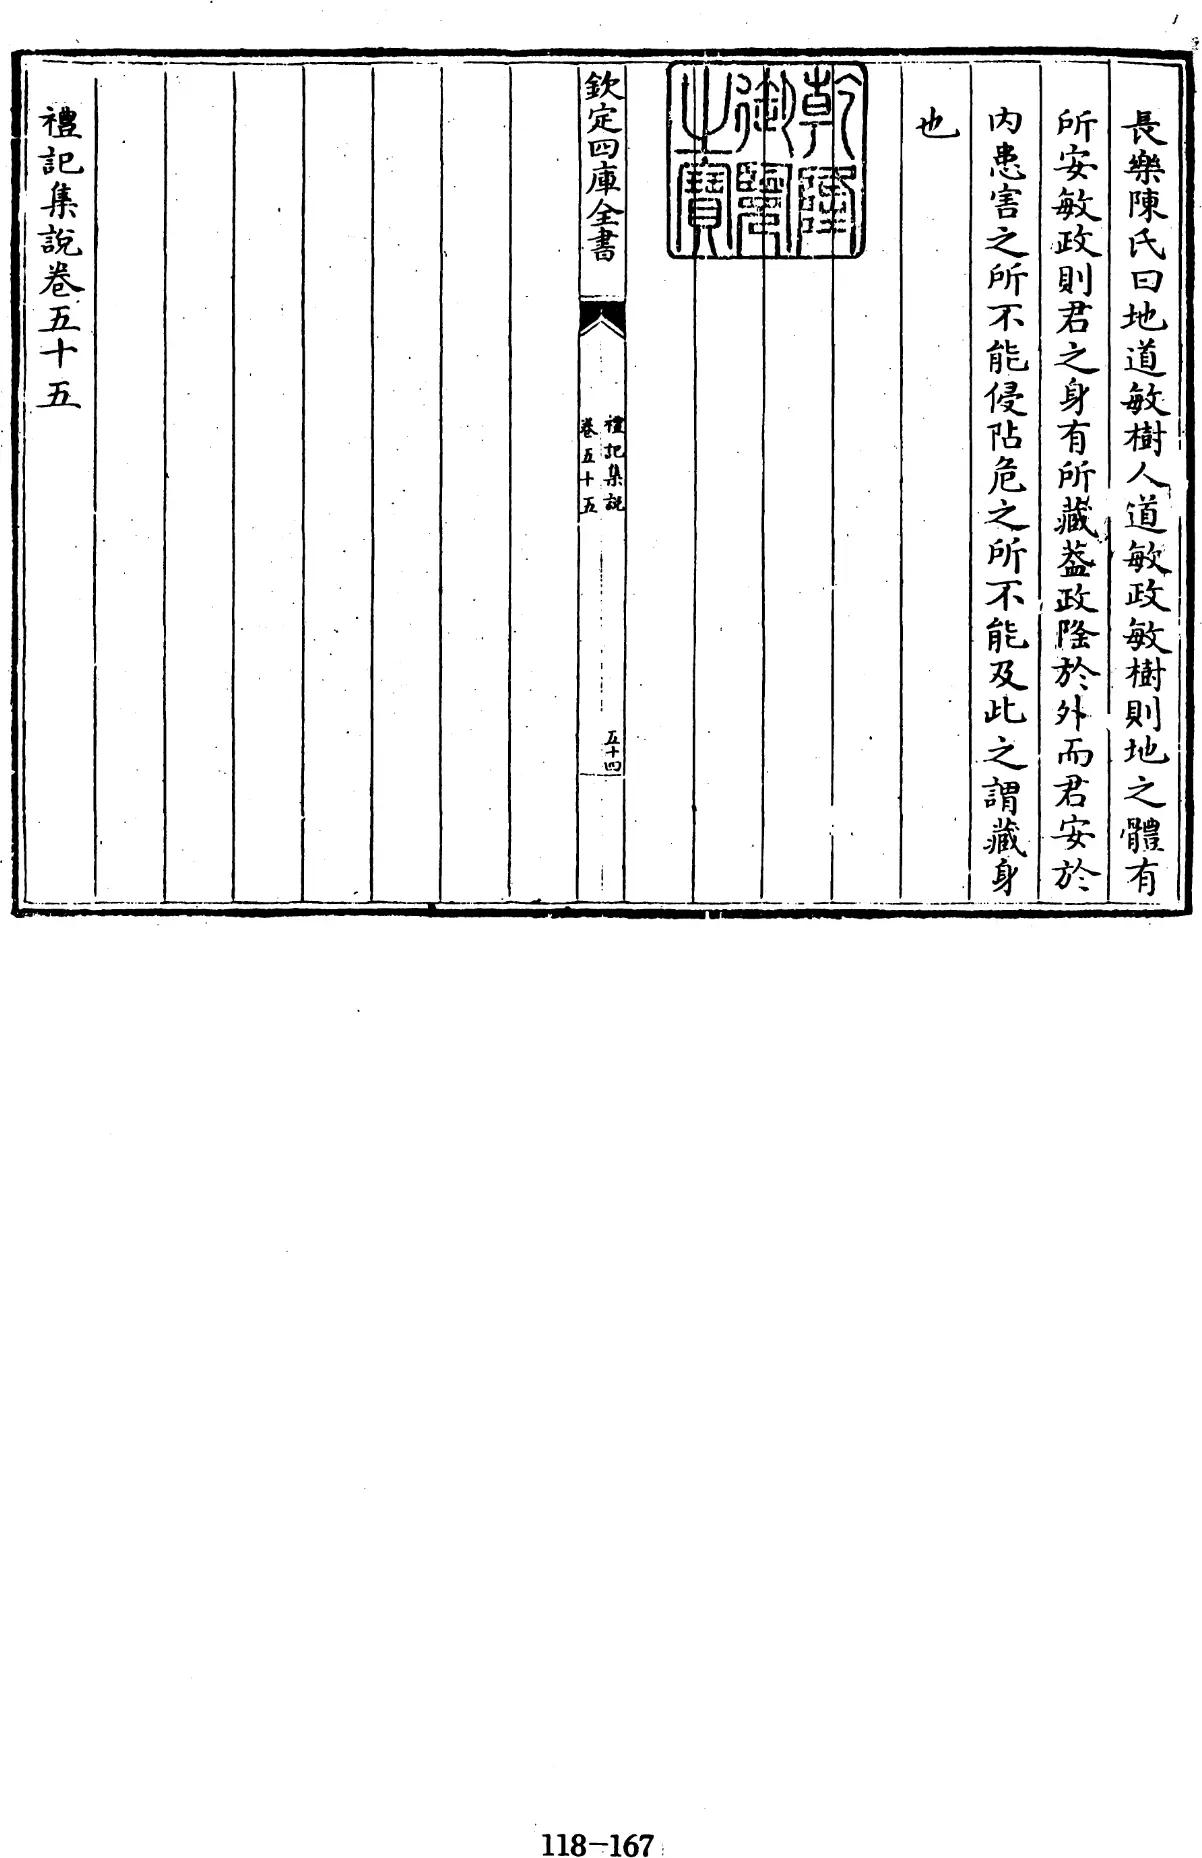 長樂陳氏曰地道敏樹人道敏政敏樹則地之體有
所安敏政則君之身有所藏葢政隆於外而君安於
内患害之所不能侵阽危之所不能及此之謂藏身
也
乾隆御覽之寶
欽定四庫全書
禮記集說
卷五十五
五十四
禮記集說卷五十五
118-167